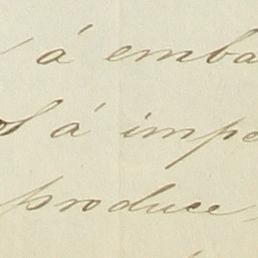 á emba
á impe
produce